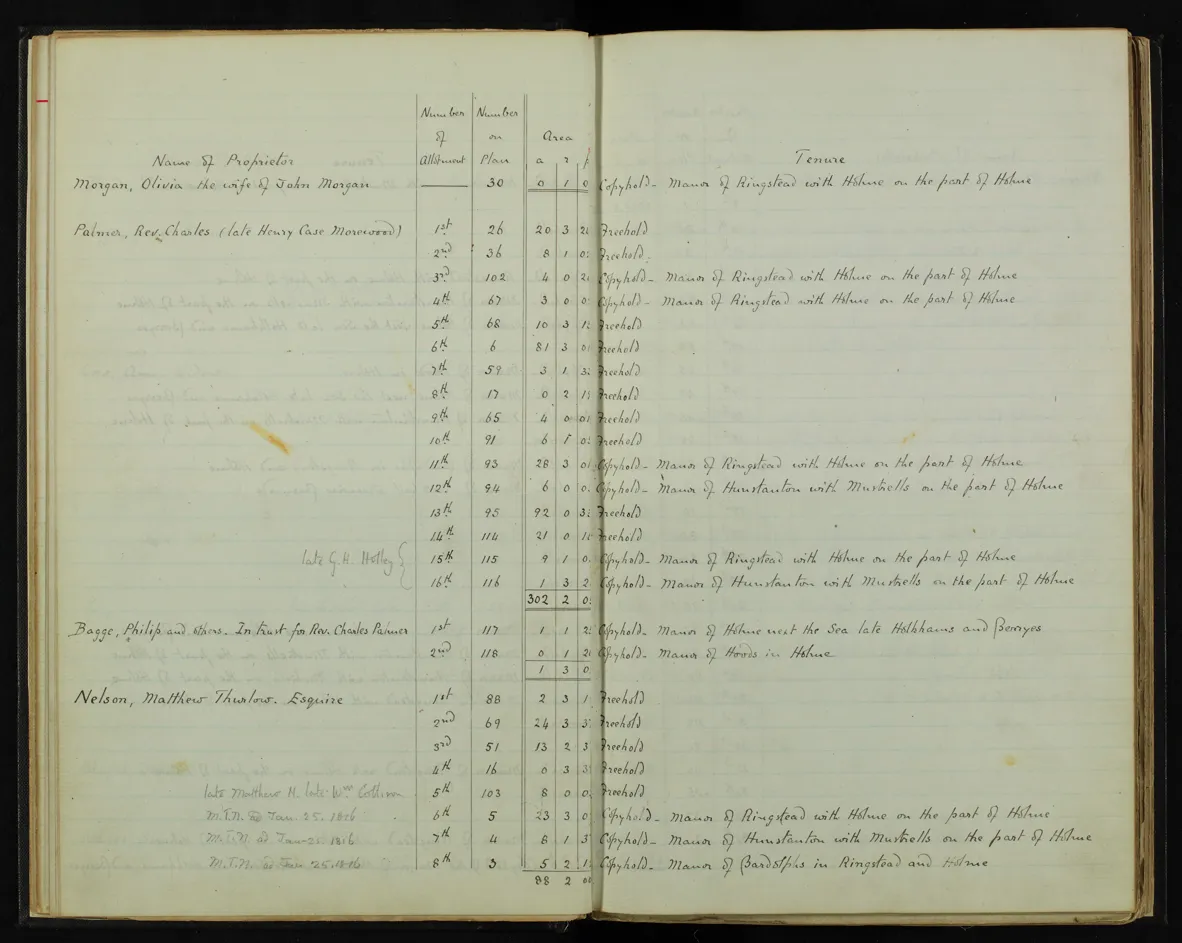 Number Number
of on Area
Name of Proprietor Allotment Plan a r p Tenure
Morgan, Olivia the wife of John Morgan — 30 0 1 0 Copyhold - Manor of Ringstead with Holme on the part of Holme
Palmer, Rev. Charles (late Henry Case Morewood) 1st 26 20 3 Freehold
2nd 36 8 1 Freehold
3rd 102 4 0 Copyhold - Manor of Ringstead with Holme on the part of Holme
4th 67 3 0 Copyhold - Manor of Ringstead with Holme on the part of Holme
5th 68 10 3 Freehold
6th 6 81 3 Freehold
7th 59 3 1 Freehold
8th 17 0 2 Freehold
9th 65 4 0 Freehold
10th 91 6 1 Freehold
11th 93 28 3 Copyhold - Manor of Ringstead with Holme on the part of Holme
12th 94 6 0 Copyhold - Manor of Hunstanton with Mustrells on the part of Holme
13th 95 92 0 Freehold
14th 114 21 0 Freehold
late G. H. Holley 15th 115 9 1 Copyhold - Manor of Ringstead with Holme on the part of Holme
16th 116 1 3 Copyhold - Manor of Hunstanton with Mustrells on the part of Holme
302 2
Bagge, Philip and others. In trust for Rev. Charles Palmer 1st 117 1 1 Copyhold - Manor of Holme next the Sea late Holkhams and Berryes
2nd 118 0 1 Copyhold - Manor of Hoods in Holme
1 3 0
Nelson, Matthew Thurlow. Esquire 1st 88 2 3 Freehold
2nd 69 24 3 Freehold
3rd 51 13 2 Freehold
4th 16 0 3 Freehold
late Matthew N. late Wm 5th 103 8 0 Freehold
M.T.N. ad Jan. 25. 1816 6th 5 23 3 Copyhold - Manor of Ringstead with Holme on the part of Holme
M.T.N. ad Jan. 25. 1816 7th 4 8 1 Copyhold - Manor of Hunstanton with Mustrells on the part of Holme
M.T.N. ad Jan. 25. 1816 8th 3 5 2 Copyhold - Manor of Bardolphs in Ringstead and Holme
88 2